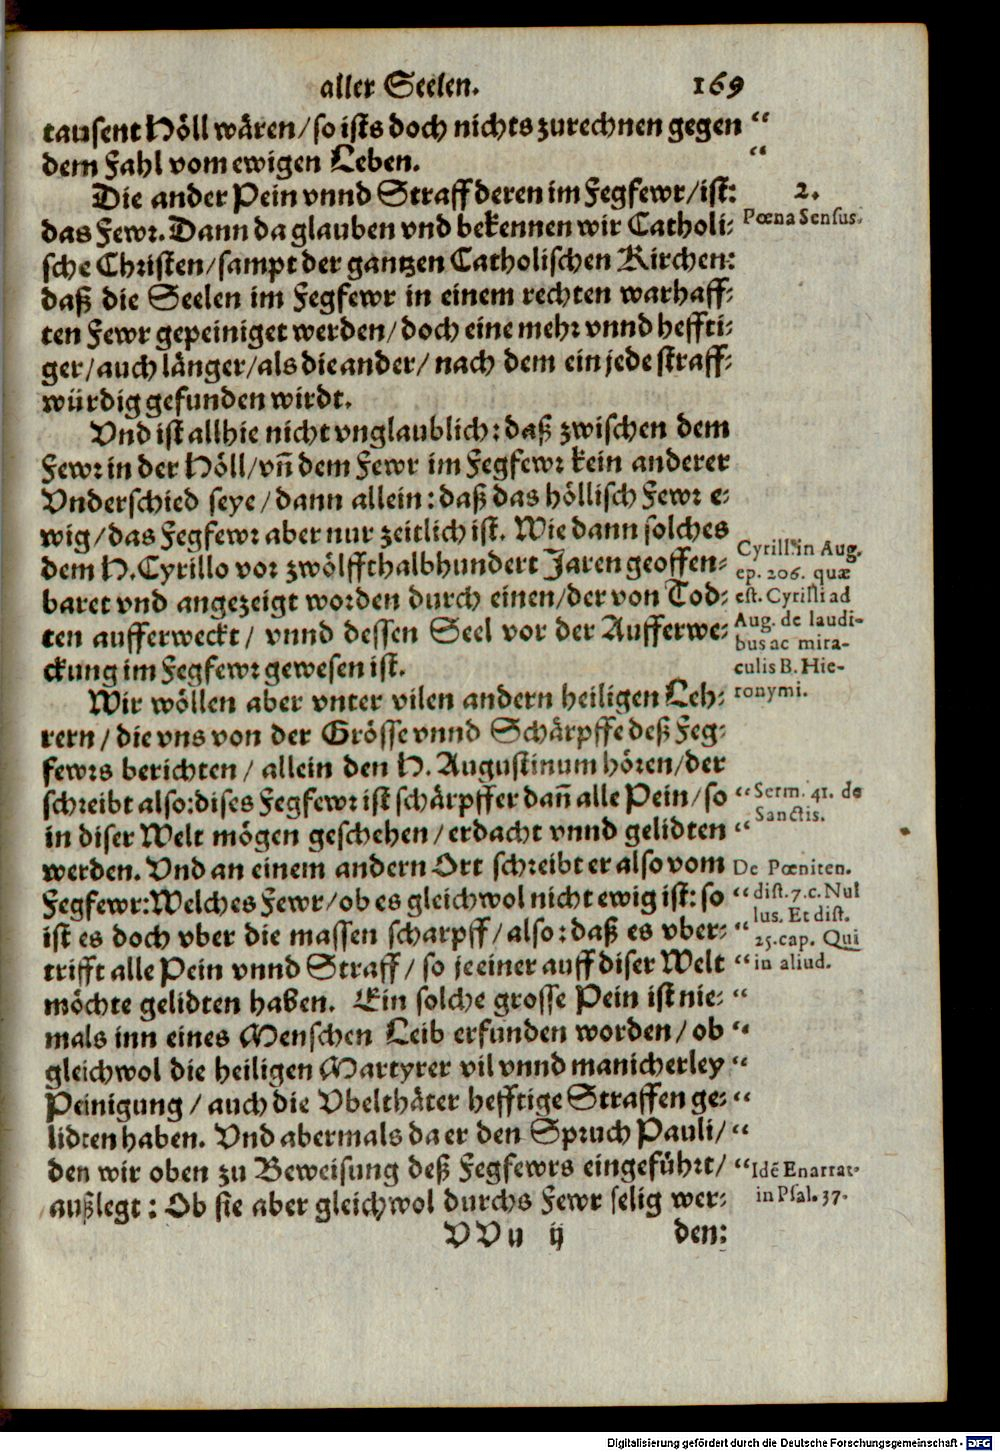 aller Seelen. 169
tausent Höll wären/so ists doch nichts zurechnen gegen “
dem Fahl vom ewigen Leben. “
Die ander Pein vnnd Straff deren im Fegfewr/ist: 2.
das Fewr. Dann da glauben vnd bekennen wir Catholi- Pœna Sensus.
sche Christen/sampt der gantzen Catholischen Kirchen:
daß die Seelen im Fegfewr in einem rechten warhaff-
ten Fewr gepeiniget werden/doch eine mehr vnnd heffti-
ger/auch länger/als die ander/nach dem ein jede straff-
würdig gefunden wirdt.
Vnd ist allhie nicht vnglaublich: daß zwischen dem
Fewr in der Höll/vñ dem Fewr im Fegfewr kein anderer
Vnderschied seye/dann allein: daß das höllisch Fewr e-
wig/das Fegfewr aber nur zeitlich ist. Wie dann solches
dem H. Cyrillo vor zwölffthalbhundert Jaren geoffen-
baret vnd angezeigt worden durch einen/der von Tod-
ten aufferweckt/vnnd dessen Seel vor der Aufferwe-
ckung im Fegfewr gewesen ist.
Cyrill. in Aug.
ep. 206. quæ
est. Cyrilli ad
Aug. de laudi-
bus ac mira-
culis B. Hie-
ronymi.
Wir wöllen aber vnter vilen andern heiligen Leh-
rern/die vns von der Grösse vnnd Schärpffe deß Feg-
fewrs berichten/allein den H. Augustinum hören/der
schreibt also: dises Fegfewr ist schärpffer dañ alle Pein/so “ Serm. 41. de
in diser Welt mögen geschehen/erdacht vnnd gelidten “ Sanctis.
werden. Vnd an einem andern Ort schreibt er also vom De Pœniten.
Fegfewr: Welches Fewr/ob es gleichwol nicht ewig ist: so “ dist. 7. c. Nul
ist es doch vber die massen scharpff/also: daß es vber- “ lus. Et dist.
25. cap. Qui
trifft alle Pein vnnd Straff/so je einer auff diser Welt “ in aliud.
möchte gelidten haben. Ein solche grosse Pein ist nie- “
mals inn eines Menschen Leib erfunden worden/ob “
gleichwol die heiligen Martyrer vil vnnd manicherley “
Peinigung/auch die Vbelthäter hefftige Straffen ge- “
lidten haben. Vnd abermals da er den Spruch Pauli/ “
den wir oben zu Beweisung deß Fegfewrs eingeführt/ “ Idē Enarrat.
außlegt: Ob sie aber gleichwol durchs Fewr selig wer- in Psal. 37.
VVu ij den:
Digitalisierung gefördert durch die Deutsche Forschungsgemeinschaft - DFG